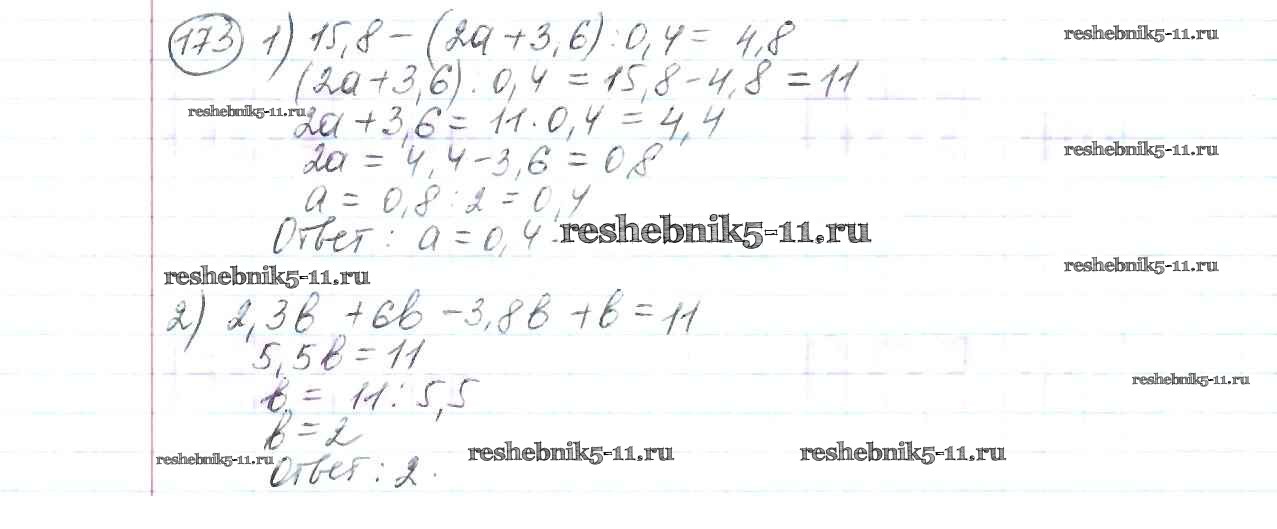 173 1) 15,8 - (2a + 3,6) : 0,4 = 4,8
reshebnik5-11.ru
(2a + 3,6) : 0,4 = 15,8 - 4,8 = 11
reshebnik5-11.ru
2a + 3,6 = 11 · 0,4 = 4,4
2a = 4,4 - 3,6 = 0,8
reshebnik5-11.ru
a = 0,8 : 2 = 0,4
Ответ: a = 0,4.
reshebnik5-11.ru
reshebnik5-11.ru
reshebnik5-11.ru
2) 2,3в + 6в - 3,8в + в = 11
5,5в = 11
в = 11 : 5,5
reshebnik5-11.ru
в = 2
reshebnik5-11.ru
reshebnik5-11.ru
reshebnik5-11.ru
Ответ: 2.